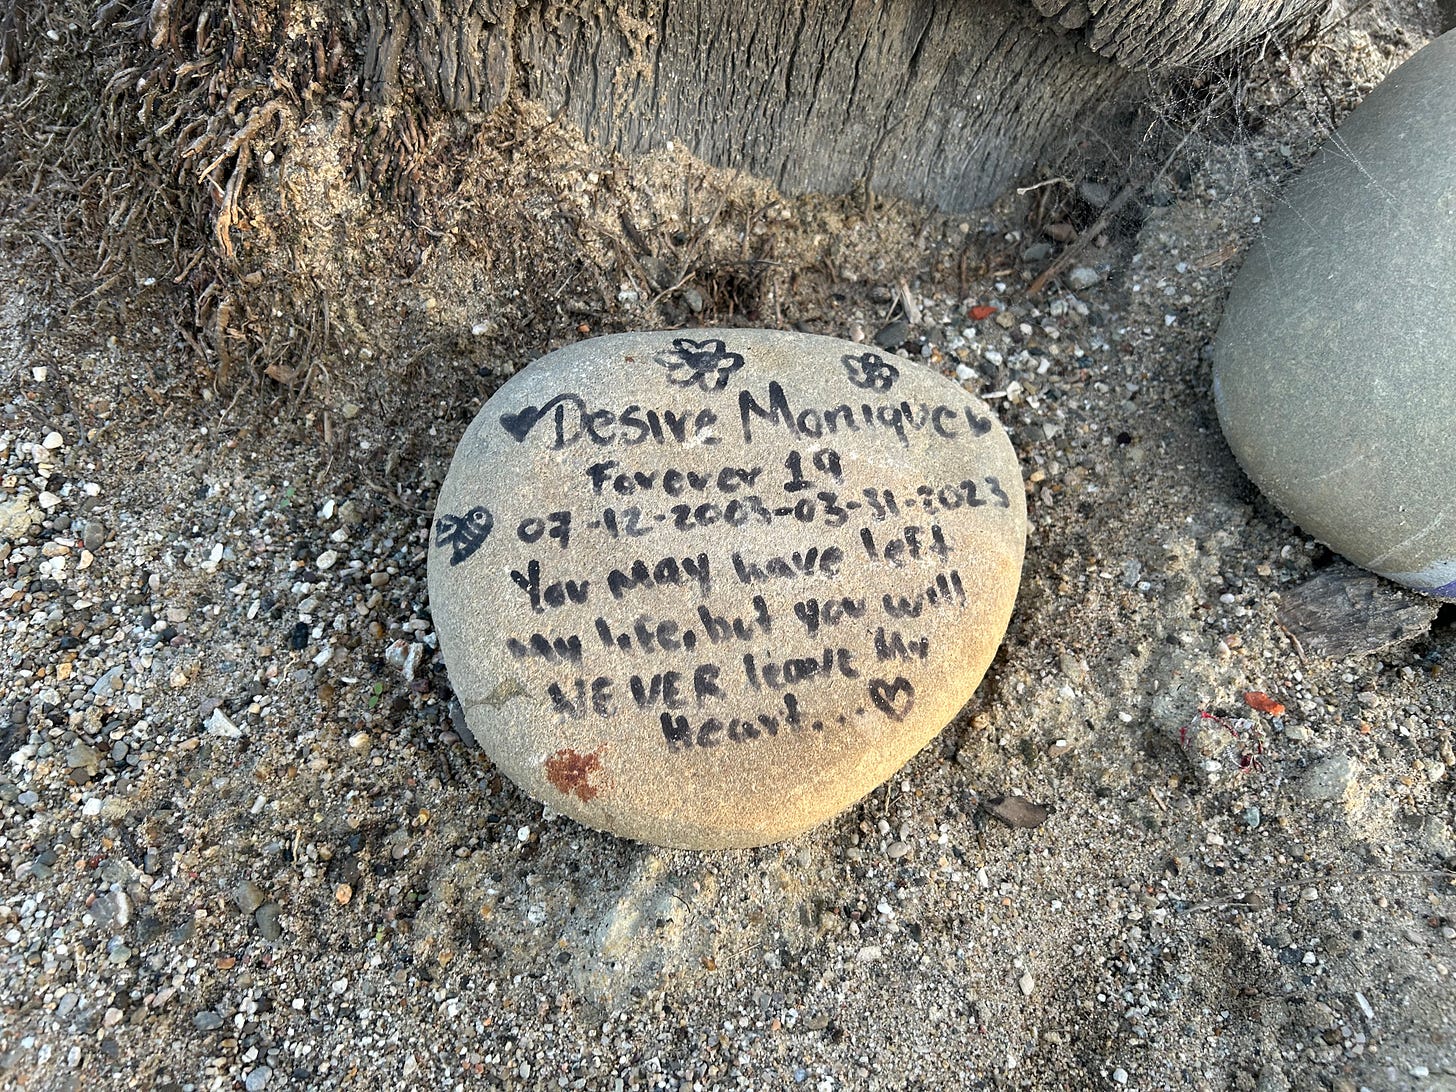 Desire Monique
Forever 19
07-12-2003-03-31-2023
You may have left
my life, but you will
NEVER leave My
Heart...